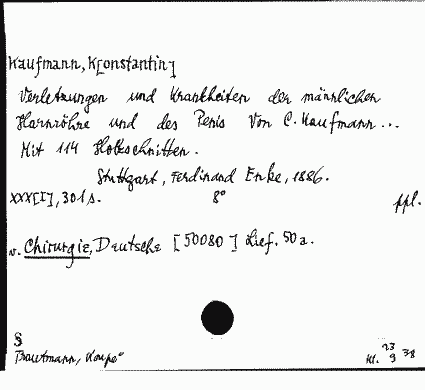 Kaufmann, K[onstantin]
Verletzungen und Krankheiten der männlichen
Harnröhre und des Penis Von C. Kaufmann...
Mit 114 Holzschnitten.
Stuttgart, Ferdinand Enke, 1886.
XXX[I], 301 s. 8° ppl.
v. Chirurgie, Deutsche [50080] Lief. 50a.
§
Trautmann,
Kl. 23 9 38